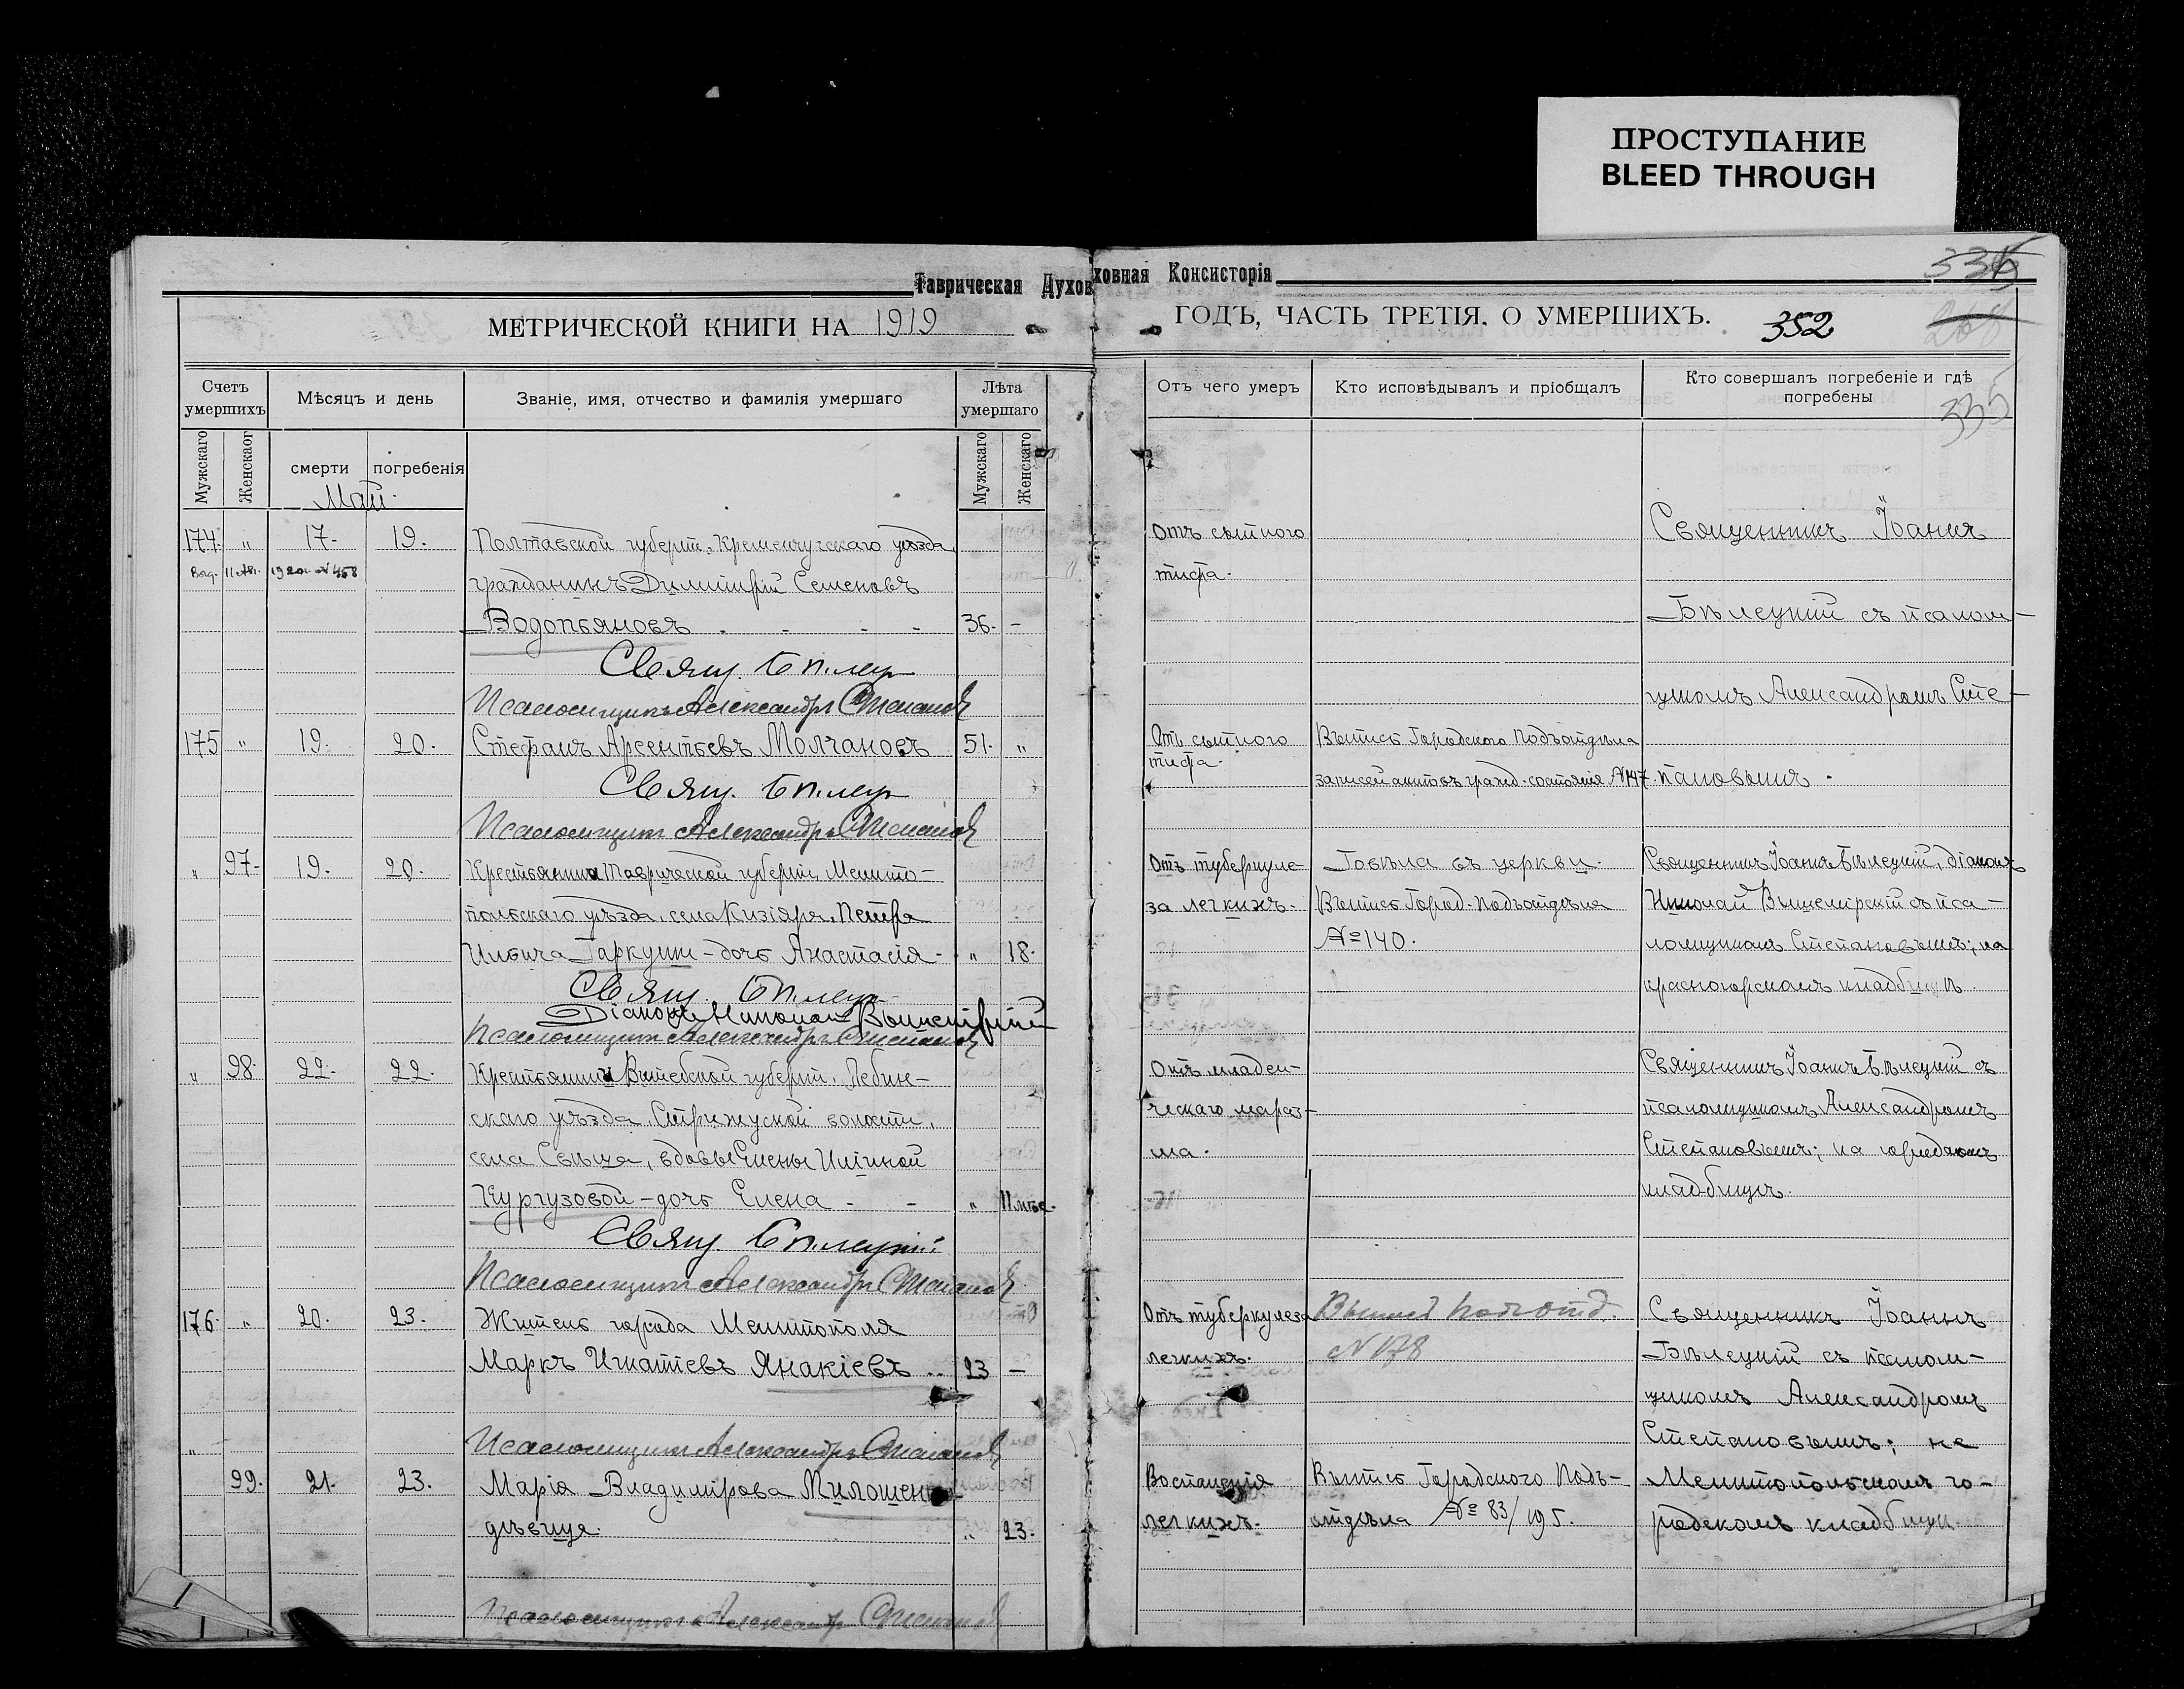 ПРОСТУПАНИЕ
BLEED THROUGH
Таврическая Духов
ховная Консисторія
336
МЕТРИЧЕСКОЙ КНИГИ НА 1919
ГОДЪ, ЧАСТЬ ТРЕТІЯ. О УМЕРШИХЪ.
352
268
Счетъ умершихъ
Мѣсяцъ и день
Званіе, имя, отчество и фамилія умершаго
Лѣта умершаго
Мужскаго
Женскаго
смерти
погребенія
Мужскаго
Женскаго
Отъ чего умеръ
Кто исповѣдывалъ и пріобщалъ
Кто совершалъ погребеніе и гдѣ погребены
335
Май
174. " 17. 19. Полтавской губерніи, Кременчугскаго уѣзда,
1920. №458
гражданинъ Димитрій Семеновъ
Водопьяновъ - - - - 36. -
Свящ. Бѣлец
Псаломщикъ Александръ Степановъ
Отъ сыпного
тифа.
Священникъ Іоаннъ
Бѣлецкій съ псалом-
щикомъ Александромъ Сте-
пановымъ.
175 " 19. 20. Стефанъ Арсентьевъ Молчановъ 51. "
Свящ. Бѣлец
Псаломщикъ Александръ Степановъ
Отъ сыпного
тифа.
Выпись Городского Подъотдѣла
записей актовъ гражд. состоянія №147.
" 97. 19. 20. Крестьянина Таврической губерніи, Мелито-
польскаго уѣзда, села Кизіяра, Петра
Ильича Гаркуши - дочь Анастасія - " 18.
Свящ. Бѣлец
Діаконъ Николай Вышемірскій
Псаломщикъ Александръ Степановъ
Отъ туберкуле-
за легкихъ.
Говѣла въ церкви.
Выпись Город. Подъотдѣла
№140.
Священникъ Іоаннъ Бѣлецкій, діаконъ
Николай Вышемірскій съ пса-
ломщикомъ Степановымъ; на
красногорскомъ кладбищѣ.
" 98. 22. 22. Крестьянки Витебской губерніи, Лебин-
скаго уѣзда, Стрижуской волости,
села вдовы Елены
Кургузовой - дочь Елена - - " 11 мѣс.
Свящ. Бѣлецкій
Псаломщикъ Александръ Степановъ
Отъ младен-
ческаго мараз-
ма.
Священникъ Іоаннъ Бѣлецкій съ
псаломщикомъ Александромъ
Степановымъ; на городскомъ
кладбищѣ.
176. " 20. 23. Житель города Мелитополя
Маркъ Игнатіевъ Янакіевъ .. 23 -
Псаломщикъ Александръ Степановъ
Отъ туберкулеза
легкихъ.
Выпись подъотд.
№ 178
Священникъ Іоаннъ
Бѣлецкій съ псалом-
щикомъ Александромъ
Степановымъ; на
Мелитопольскомъ го-
родскомъ кладбищѣ.
" 99. 21. 23. Марія Владимірова Милошенко
дѣвица. " 23.
Псаломщикъ Александръ Степановъ
Воспаленія
легкихъ.
Выпись Городского Подъ-
отдѣла № 83/195.